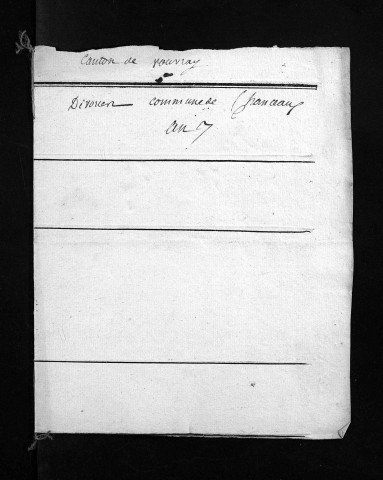 Canton de vouvray
Divorces commune de Chanceaux
an 7